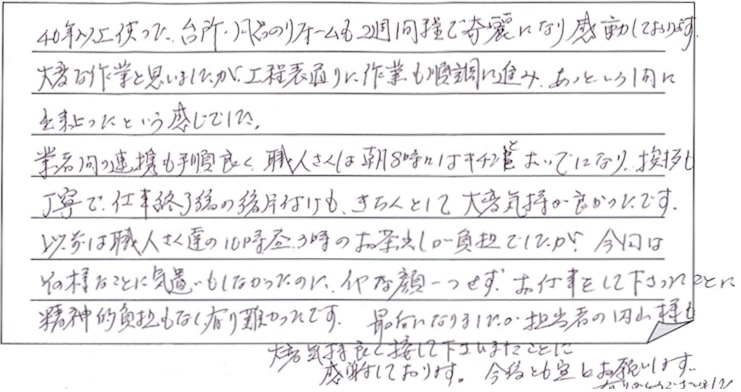 40年以上使った、台所・風呂のリフォームも2週間程で奇麗になり感動しております。
大変な作業と思いましたが、工程表通りに作業も順調に進み、あっという間に
終わったという感じでした。
業者間の連携も手順良く、職人さんは朝8時にはキチンとおいでになり、挨拶も
丁寧で、仕事終了後の後片付けも、きちんとして大変気持が良かったです。
以前は職人さん達の10時昼3時のお茶出しが負担でしたが、今回は
その様なことに気遣いもしなかったのに、イヤな顔一つせず、お仕事をして下さったことに
精神的負担もなく有り難かったです。 最后になりましたが担当者の内山様も
大変気持良く接して下さいましたことに
感謝しております。今後とも宜しくお願いします。
ありがとうございました